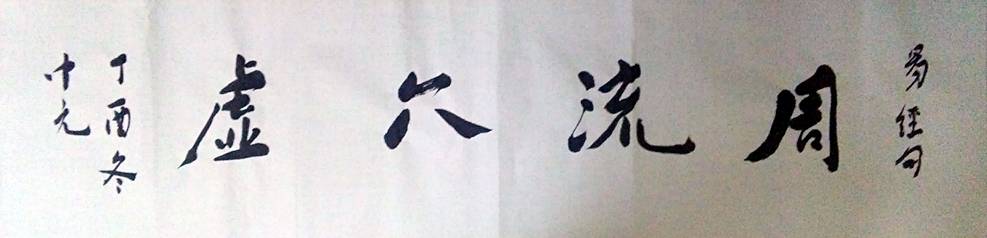 易經句
周流六虛
丁酉冬
中元